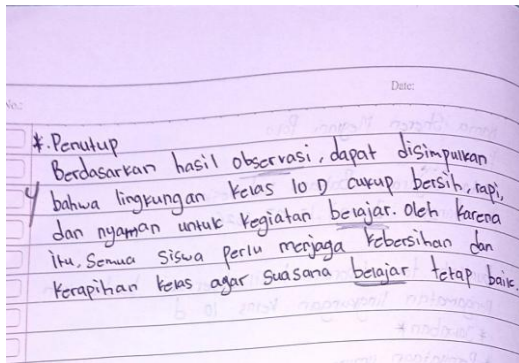 Date:
No.:
*. Penutup
Berdasarkan hasil observasi, dapat disimpulkan
4 bahwa lingkungan kelas 10 D cukup bersih, rapi,
dan nyaman untuk kegiatan belajar. Oleh karena
itu, semua siswa perlu menjaga kebersihan dan
kerapihan kelas agar suasana belajar tetap baik.